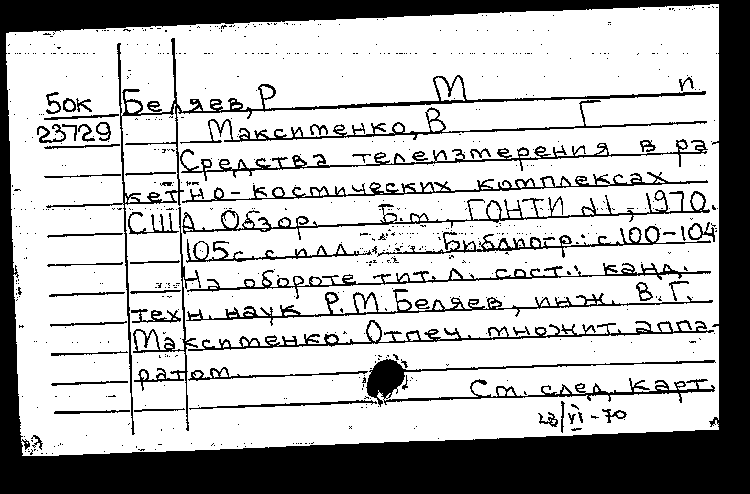 Бок Беляев, Р М п
23729 Максименко, В Г
Средства телеизмерения в ра-
кетно-космических комплексах
США. Обзор. Б.м., ГОНТИ №1, 1970.
105с. с илл. Библиогр.: с.100-104
На обороте тит. л. сост.: канд.
техн. наук Р.М.Беляев, инж. В.Г.
Максименко. Отпеч. множит. аппа-
ратом.
См. след. карт.
23/VI-70